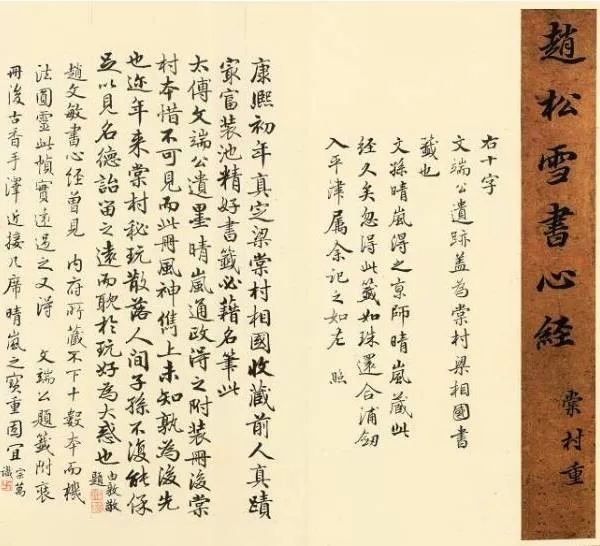 趙松雪書心經
棠村重
右十字
文端公遺跡盖為棠村梁相國書
籤也
文孫晴嵐得之京師晴嵐藏此
經久矣忽得此籤如珠還合浦劒
入平津屬余記之如左 照
康熙初年真定梁棠村相國收藏前人真蹟
㝡富装池精好書籤必藉名筆此
太傅文端公遺墨晴嵐通政得之附装冊後棠
村本惜不可見而此冊風神雋上未知孰為後先
也近年来棠村秘玩散落人間子孫不復能保
足以見名德詒留之遠而耽於玩好為大惑也
由敦敬
題
趙文敏書心經曾見 内府所藏不下十數本而機
法圓靈此幀實遠過之又得 文端公題籤附裒
冊後古香手澤近接几席晴嵐之寶重固宜
宗萬
識